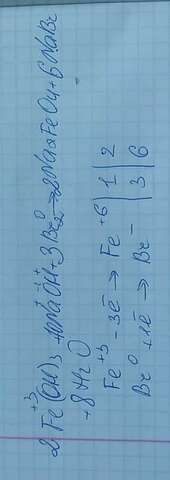 2Fe⁺³(OH)₃ + 10Na⁺OH + 3Br₂⁰ → 2Na₂FeO₄ + 6NaBr
+ 8H₂O
Fe⁺³ - 3ē → Fe⁺⁶ | 1 | 2
Br⁰ + 1ē → Br⁻ | 3 | 6